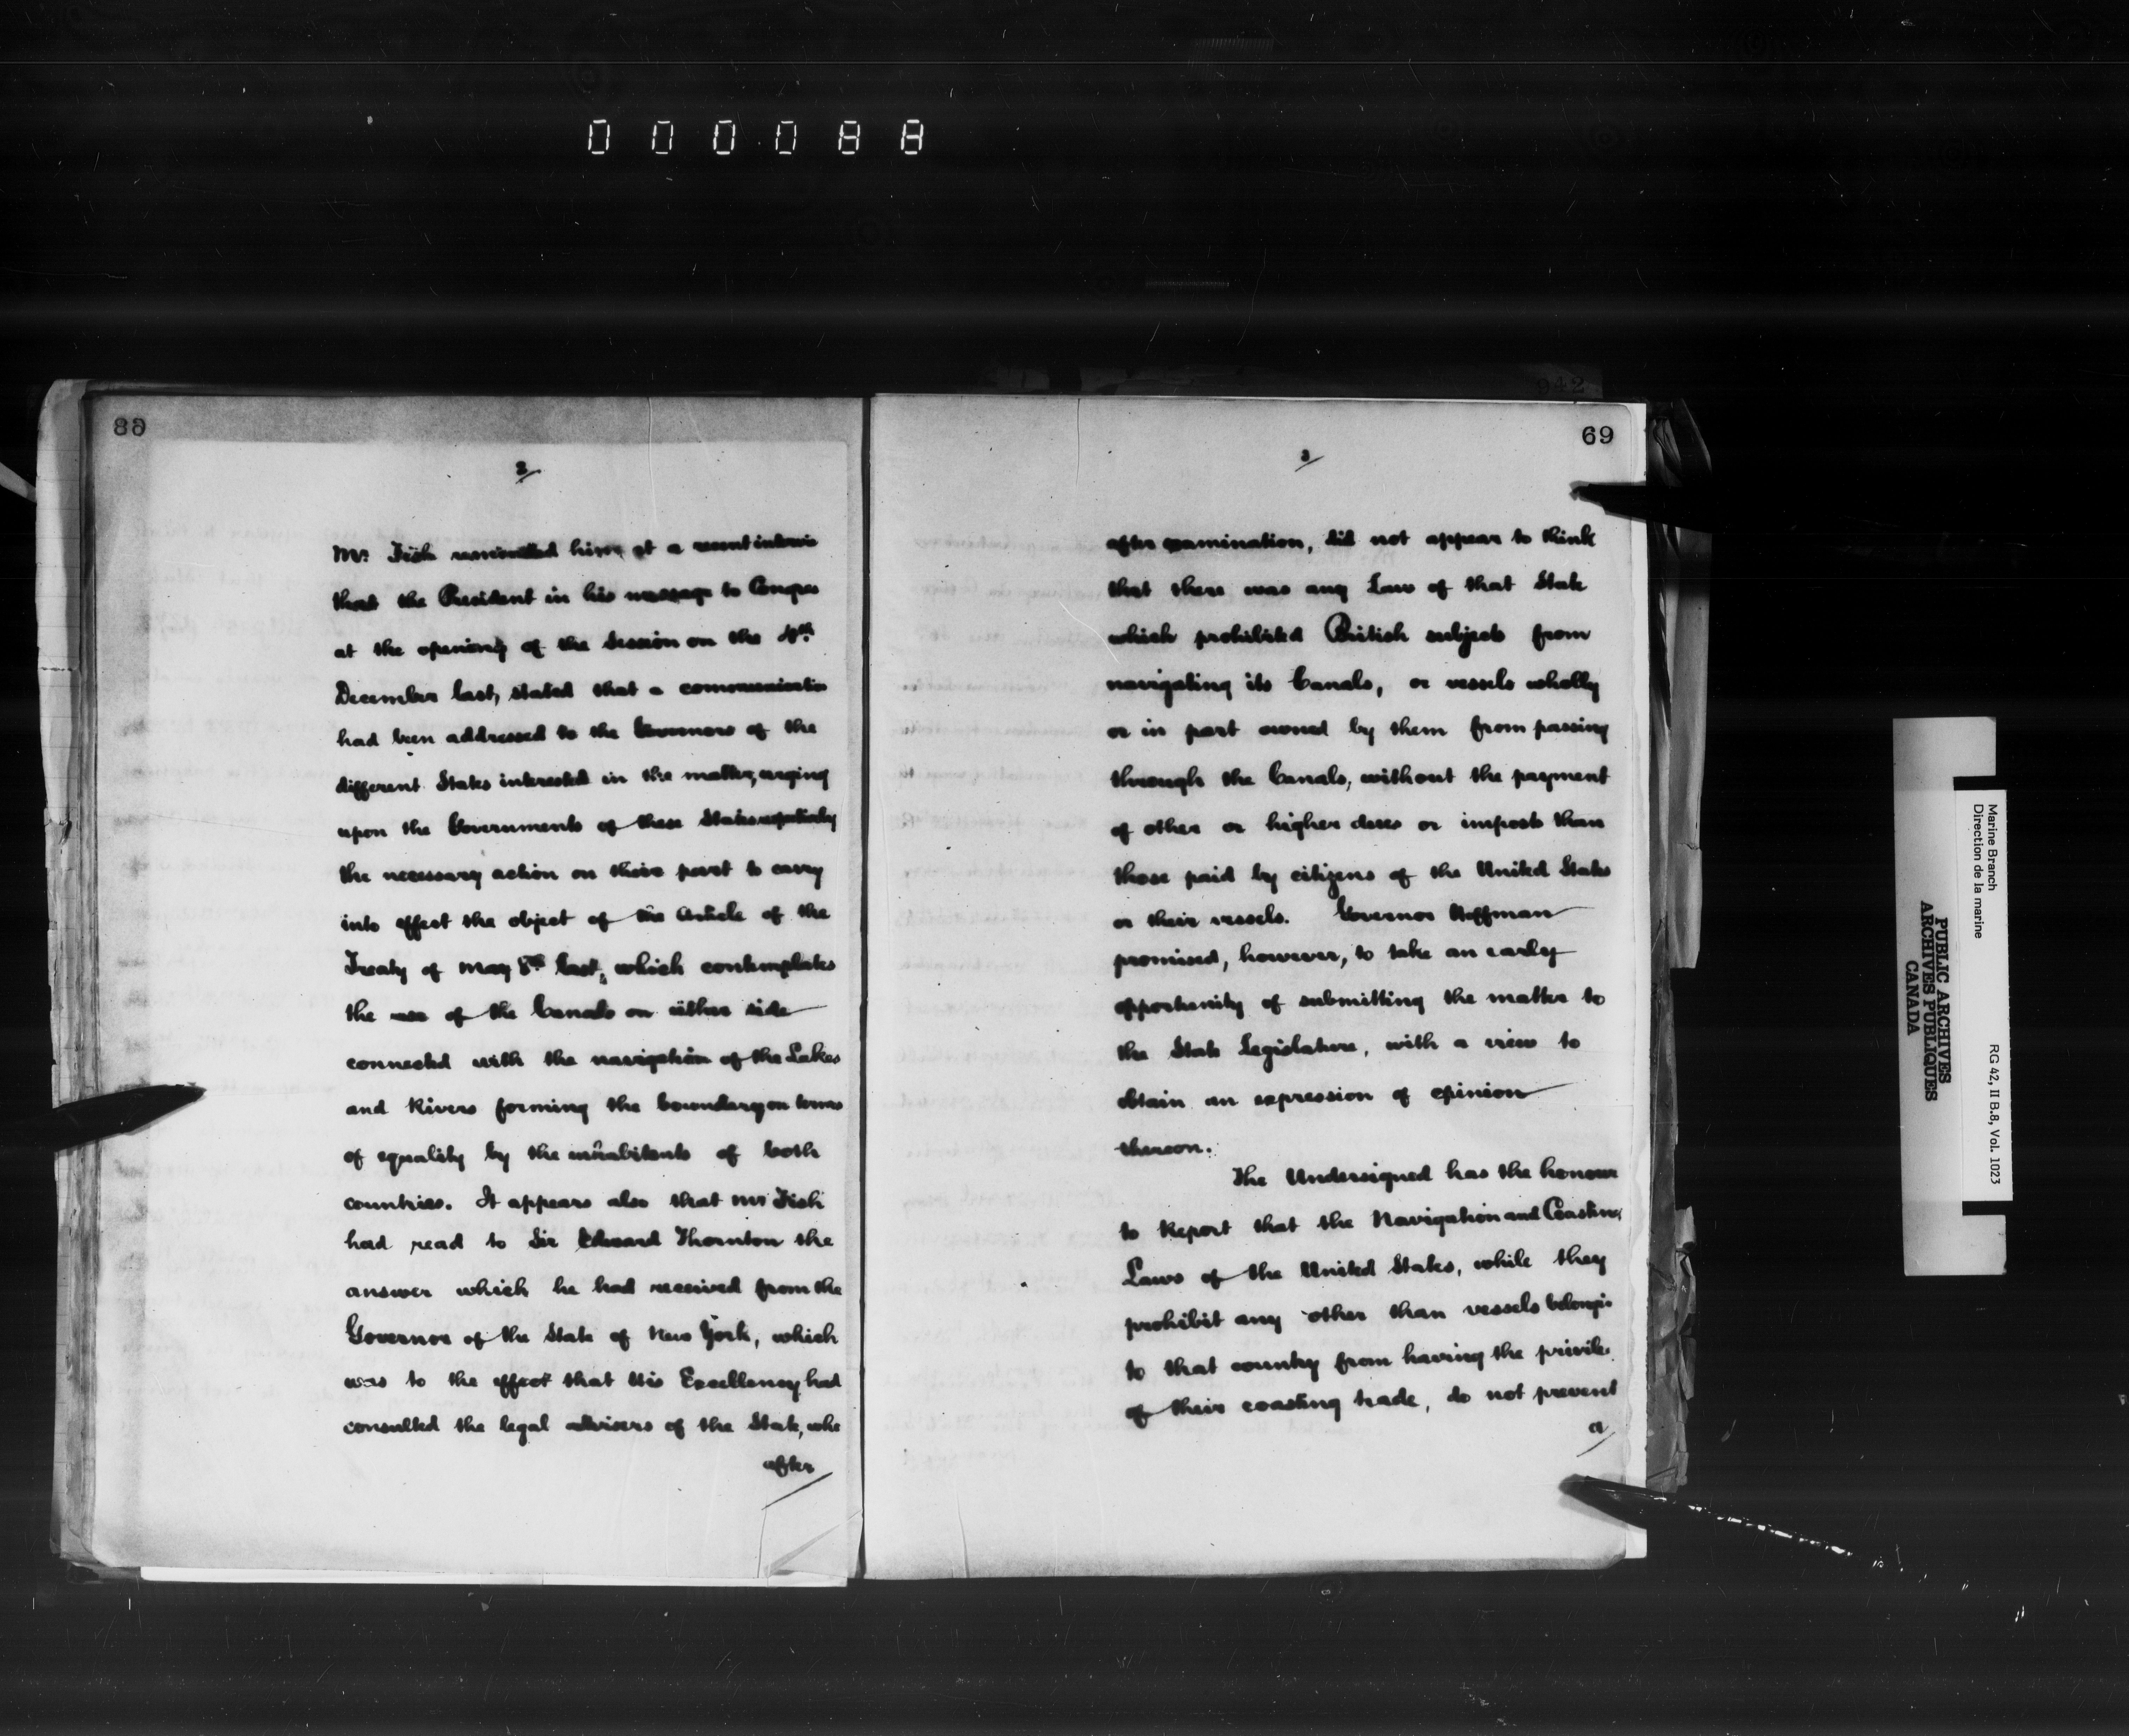 000088
942
68
2
Mr. Fish reminded him, at a recent intervie
that the President in his message to Congres
at the opening of the Session on the 4th
December last, stated that a communicatio
had been addressed to the Governors of the
different States interested in the matter, urging
upon the Governments of these States repeatedly
the necessary action on their part to carry
into effect the object of the Article of the
Treaty of May 8th last, which contemplates
the use of the Canals on either side
connected with the navigation of the Lakes
and Rivers forming the boundary on terms
of equality by the inhabitants of both
countries. It appears also that Mr Fish
had read to Sir Edward Thornton the
answer which he had received from the
Governor of the State of New York, which
was to the effect that His Excellency had
consulted the legal advisers of the State, who
after
69
3
after examination, did not appear to think
that there was any Law of that State
which prohibited British subjects from
navigating its Canals, or vessels wholly
or in part owned by them from passing
through the Canals, without the payment
of other or higher dues or imposts than
those paid by citizens of the United States
or their vessels. Governor Hoffman
promised, however, to take an early
opportunity of submitting the matter to
the State Legislature, with a view to
obtain an expression of opinion
thereon.
The Undersigned has the honour
to Report that the Navigation and Coasting
Laws of the United States, while they
prohibit any other than vessels belongi
to that country from having the privile
of their coasting trade, do not prevent
a
Marine Branch
Direction de la marine
RG 42, II B.8, Vol. 1023
PUBLIC ARCHIVES
ARCHIVES PUBLIQUES
CANADA